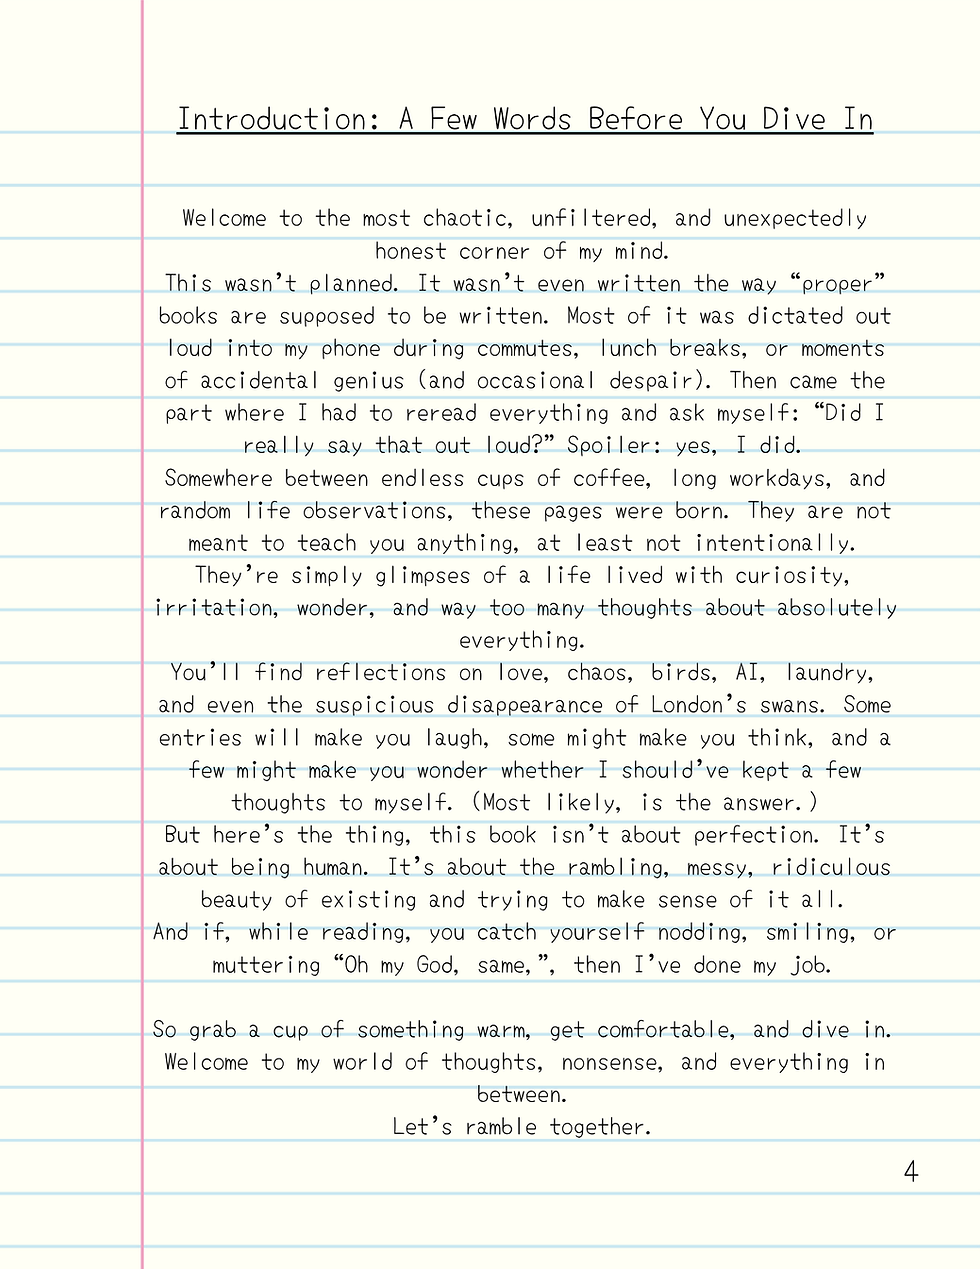 Introduction: A Few Words Before You Dive In
Welcome to the most chaotic, unfiltered, and unexpectedly
honest corner of my mind.
This wasn’t planned. It wasn’t even written the way “proper”
books are supposed to be written. Most of it was dictated out
loud into my phone during commutes, lunch breaks, or moments
of accidental genius (and occasional despair). Then came the
part where I had to reread everything and ask myself: “Did I
really say that out loud?” Spoiler: yes, I did.
Somewhere between endless cups of coffee, long workdays, and
random life observations, these pages were born. They are not
meant to teach you anything, at least not intentionally.
They’re simply glimpses of a life lived with curiosity,
irritation, wonder, and way too many thoughts about absolutely
everything.
You’ll find reflections on love, chaos, birds, AI, laundry,
and even the suspicious disappearance of London’s swans. Some
entries will make you laugh, some might make you think, and a
few might make you wonder whether I should’ve kept a few
thoughts to myself. (Most likely, is the answer.)
But here’s the thing, this book isn’t about perfection. It’s
about being human. It’s about the rambling, messy, ridiculous
beauty of existing and trying to make sense of it all.
And if, while reading, you catch yourself nodding, smiling, or
muttering “Oh my God, same,”, then I’ve done my job.
So grab a cup of something warm, get comfortable, and dive in.
Welcome to my world of thoughts, nonsense, and everything in
between.
Let’s ramble together.
4